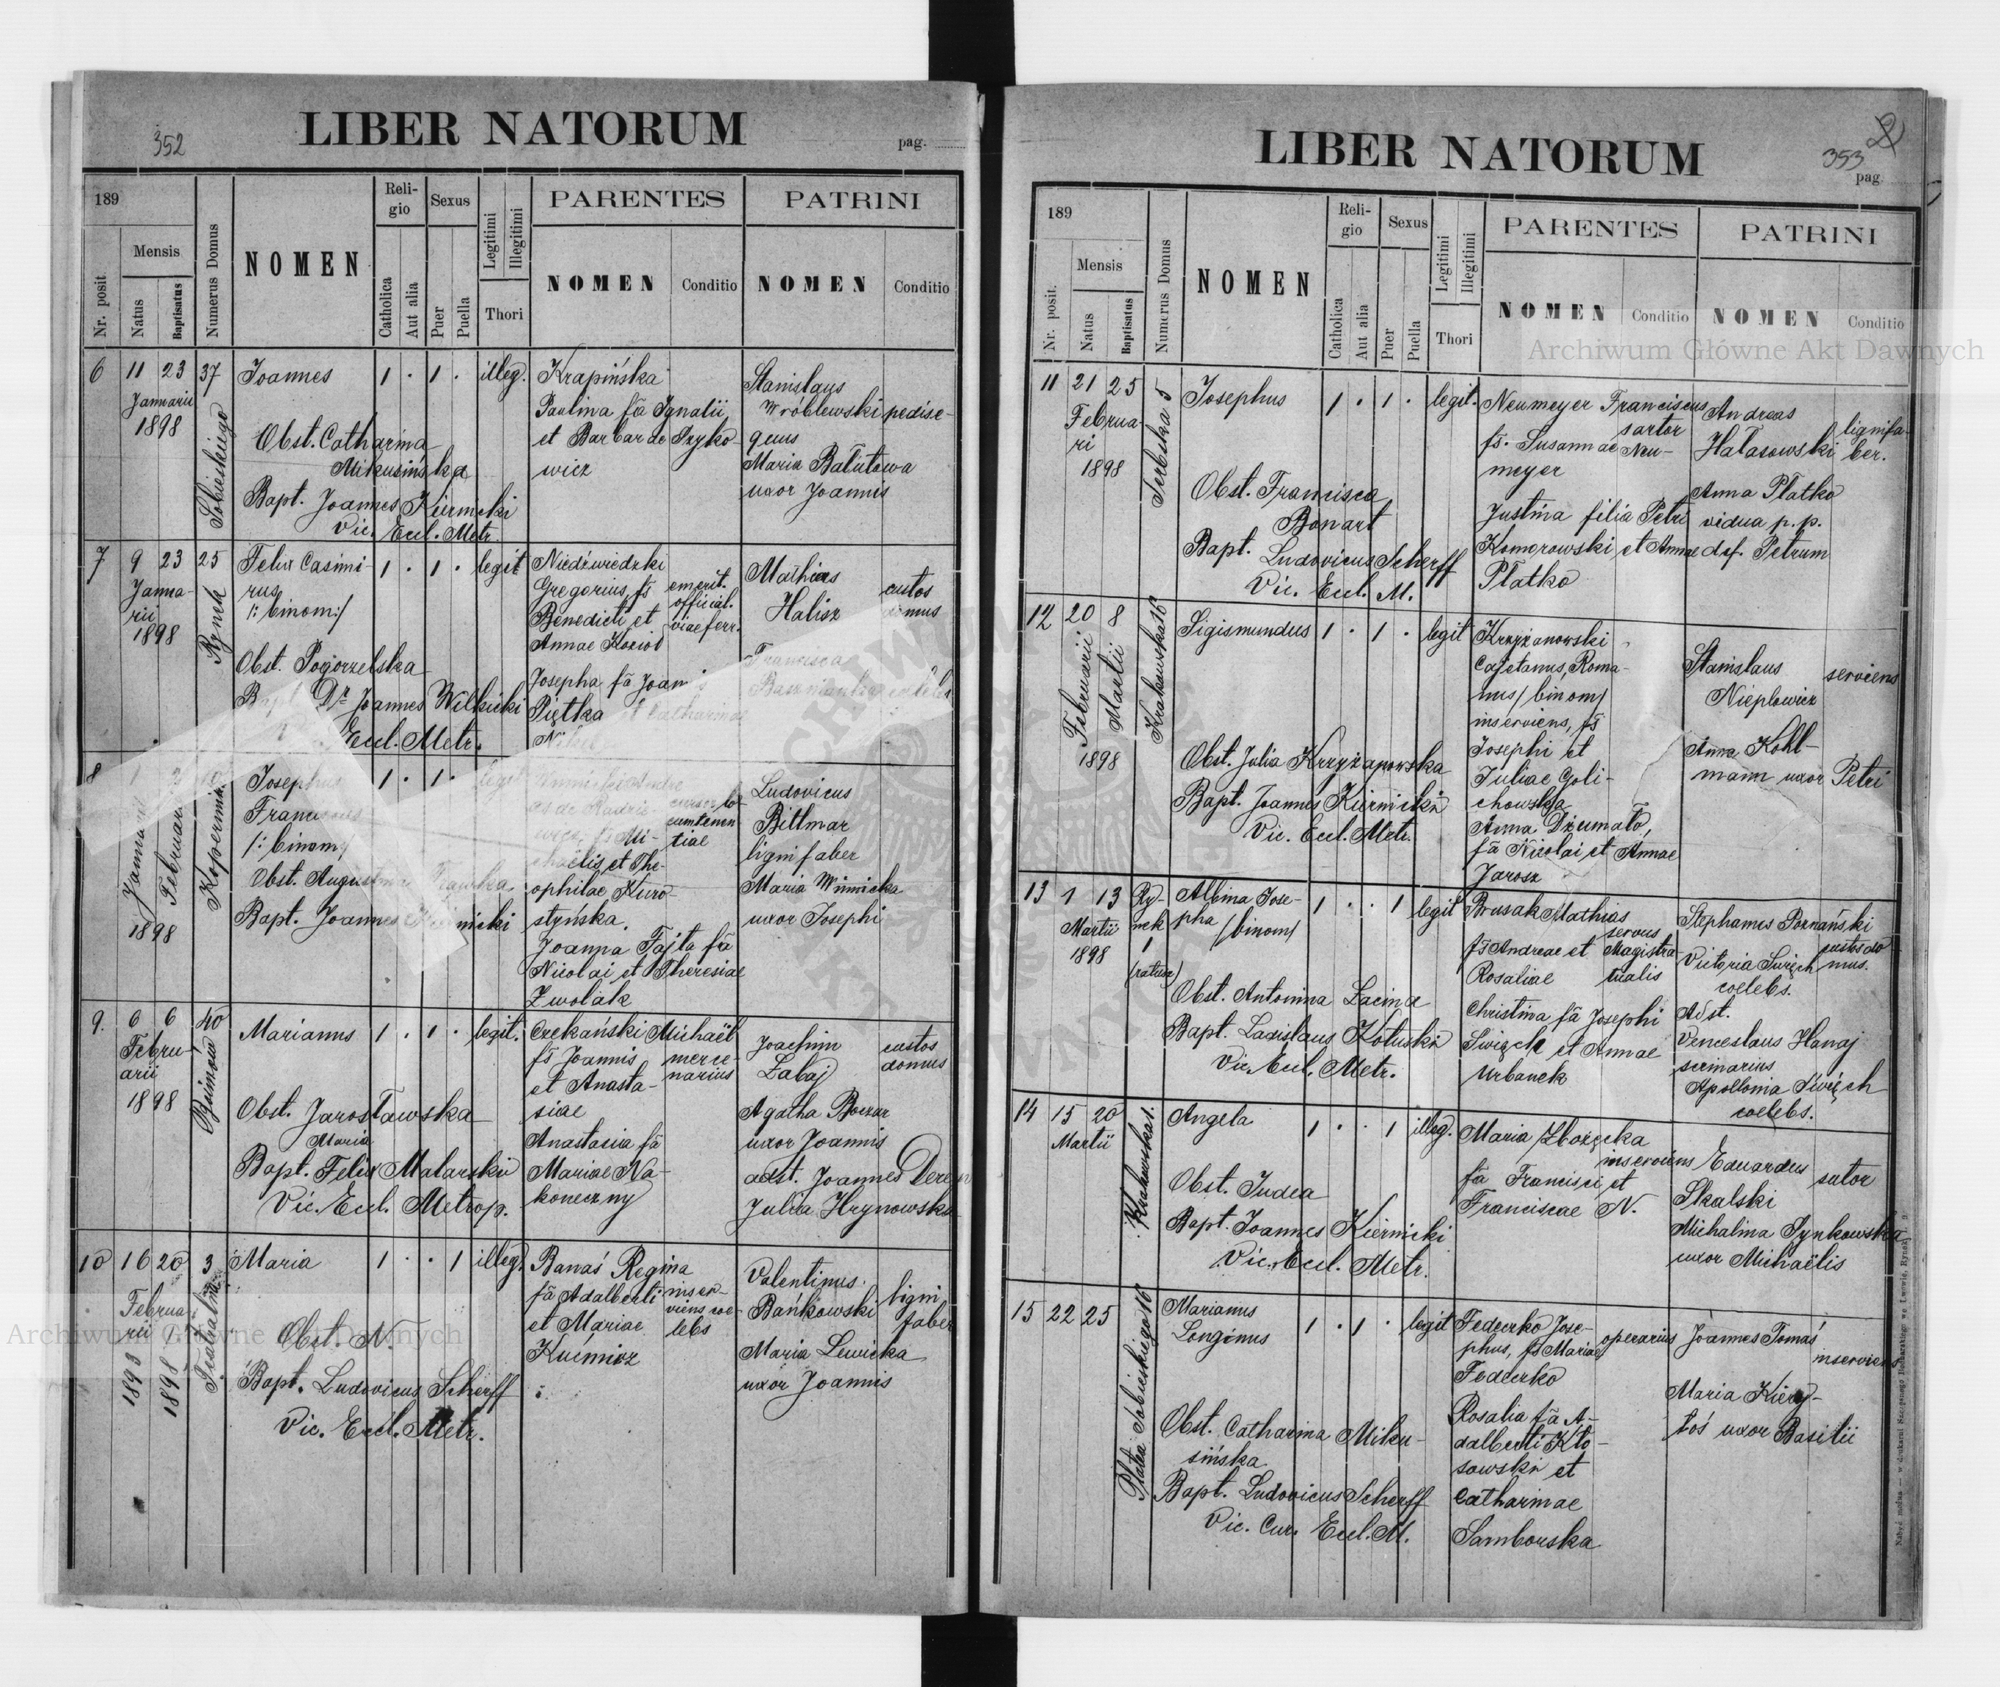 352
LIBER NATORUM
pag.
189
Nr. posit.
Mensis
Natus
Baptisatus
Numerus Domus
NOMEN
Reli-
gio
Catholica
Aut alia
Sexus
Puer
Puella
Legitimi
Illegitimi
Thori
PARENTES
NOMEN
Conditio
PATRINI
NOMEN
Conditio
6
11
23
Januarii
1898
37
Sobieskiego
Joannes
Obst. Catharina
Mikusińska
Bapt. Joannes Kiernicki
Vic. Eccl. Metr.
1 · 1 ·
illeg.
Krapińska
Paulina fa Ignatii
et Barbarae Szyko-
wicz
Stanislaus
Wróblewski pedise-
quus
Maria Bałutowa
uxor Joannis
7
9
23
Janua-
rii
1898
25
Rynek
Felix Casimi-
rus
/: binom:/
Obst. Pogorzelska
Dr Joannes Wilkicki
Eccl. Metr.
1 · 1 ·
legit
Niedźwiedzki
Gregorius, fs
Benedicti et
Annae Kozioł
emerit.
official.
viae ferr.
Josepha fa Joannis
Piętka et Catharinae
Mathias
Halisz
custos
domus
Francisca
8
Januarii
Februarii
1898
Kopernika
Josephus
Franciscus
/: binom/
Obst. Augustina
Bapt. Joannes Kiernicki
1 · 1 ·
legit
chaelis et The-
ophilae Kuro-
styńska.
Joanna Fajta fa
Nicolai et Theresiae
Zwolak
Ludovicus
Bittmar
lignifaber
Maria Winnicka
uxor Josephi
9.
6
6
Febru-
arii
1898
40
Marianus
Obst. Jarosławska
Maria
Bapt. Felix Matarski
Vic. Eccl. Metrop.
1 · 1 ·
legit.
Czekański Michaël
fs Joannis
et Anasta-
siae
merce-
narius
Anastasia fa
Mariae Na-
koneczny
Joachim
Labaj
custos
domus
Agatha Boczar
uxor Joannis
adst. Joannes Deren
Julia Hrynowska
10
16
20
Februa-
rii
1898
1898
3
Teatralna
Maria
Obst. N.
Bapt. Ludovicus Scherff
Vic. Eccl. Metr.
1 · · 1
illeg.
Banaś Regina
fa Adalberti
et Mariae
Kuśnierz
inser-
viens coe-
lebs
Valentinus
Bańkowski
ligni
faber
Maria Lewicka
uxor Joannis
353
LIBER NATORUM
pag.
189
Nr. posit.
Mensis
Natus
Baptisatus
Numerus Domus
NOMEN
Reli-
gio
Catholica
Aut alia
Sexus
Puer
Puella
Legitimi
Illegitimi
Thori
PARENTES
NOMEN
Conditio
PATRINI
NOMEN
Conditio
11
21
25
Februa-
ri
1898
Serbska 5
Josephus
Obst. Francisca
Bonart
Bapt. Ludovicus Scherff
Vic. Eccl. M.
1 · 1 ·
legit.
Neumeyer Franciscus
sartor
fs. Susannae Neu-
meyer
Justina filia Petri
Komorowski et Annae
Płatko
Andreas
Hałasowski
lignifa-
ber.
Anna Płatko
vidua p. p.
def. Petrum
12
20
8
Februarii
Martii
1898
Krakowska 16
Sigismundus
Obst. Julia Krzyżanowska
Bapt. Joannes Kiernicki
Vic. Eccl. Metr.
1 · 1 ·
legit
Krzyżanowski
Cajetanus, Roma-
nus/ binom/
inserviens, fs
Josephi et
Juliae Goli-
chowska
Anna Dżumało,
fa Nicolai et Annae
Jarosz
Stanislaus
Nieplowicz
serviens
Anna Kohl-
mann uxor Petri
13
1
13
Martii
1898
Ry-
nek
1
(ratusz)
Albina Jose-
pha /binom/
Obst. Antonina Lacina
Bapt. Ladislaus Kotuski
Vic. Eccl. Metr.
1 · · 1
legit
Brusak Mathias
servus
fs Andreae et Magistra-
Rosaliae tualis
Christina fa Josephi
Święch et Annae
Urbanek
Stephanus Poznański
custos do-
mus.
Victoria Święch
coelebs.
Adst.
Venceslaus Hanaj
Apollonia Święch
coelebs.
14
15
20
Martii
Krakowska 1.
Angela
Obst. Judea
Bapt. Joannes Kiernicki
Vic. Eccl. Metr.
1 · · 1
illeg.
Maria Zbożęcka
inserviens
fa Francisci et
Franciscae N.
Eduardus sutor
Skalski
Michalina Synkowska
uxor Michaëlis
15
22
25
Platea Sobieskiego 16
Marianus
Longinus
Obst. Catharina Miku-
sińska
Bapt. Ludovicus Scherff
Vic. Cur. Eccl. M.
1 · 1 ·
legit
Federko Jose-
phus, fs Mariae
Federko
operarius
Rosalia fa A-
dalberti Kło-
sowski et
Catharinae
Samborska
Joannes Tomaś
inserviens
Maria Kiery-
łoś uxor Basilii
Archiwum Główne Akt Dawnych
Archiwum Główne Akt Dawnych